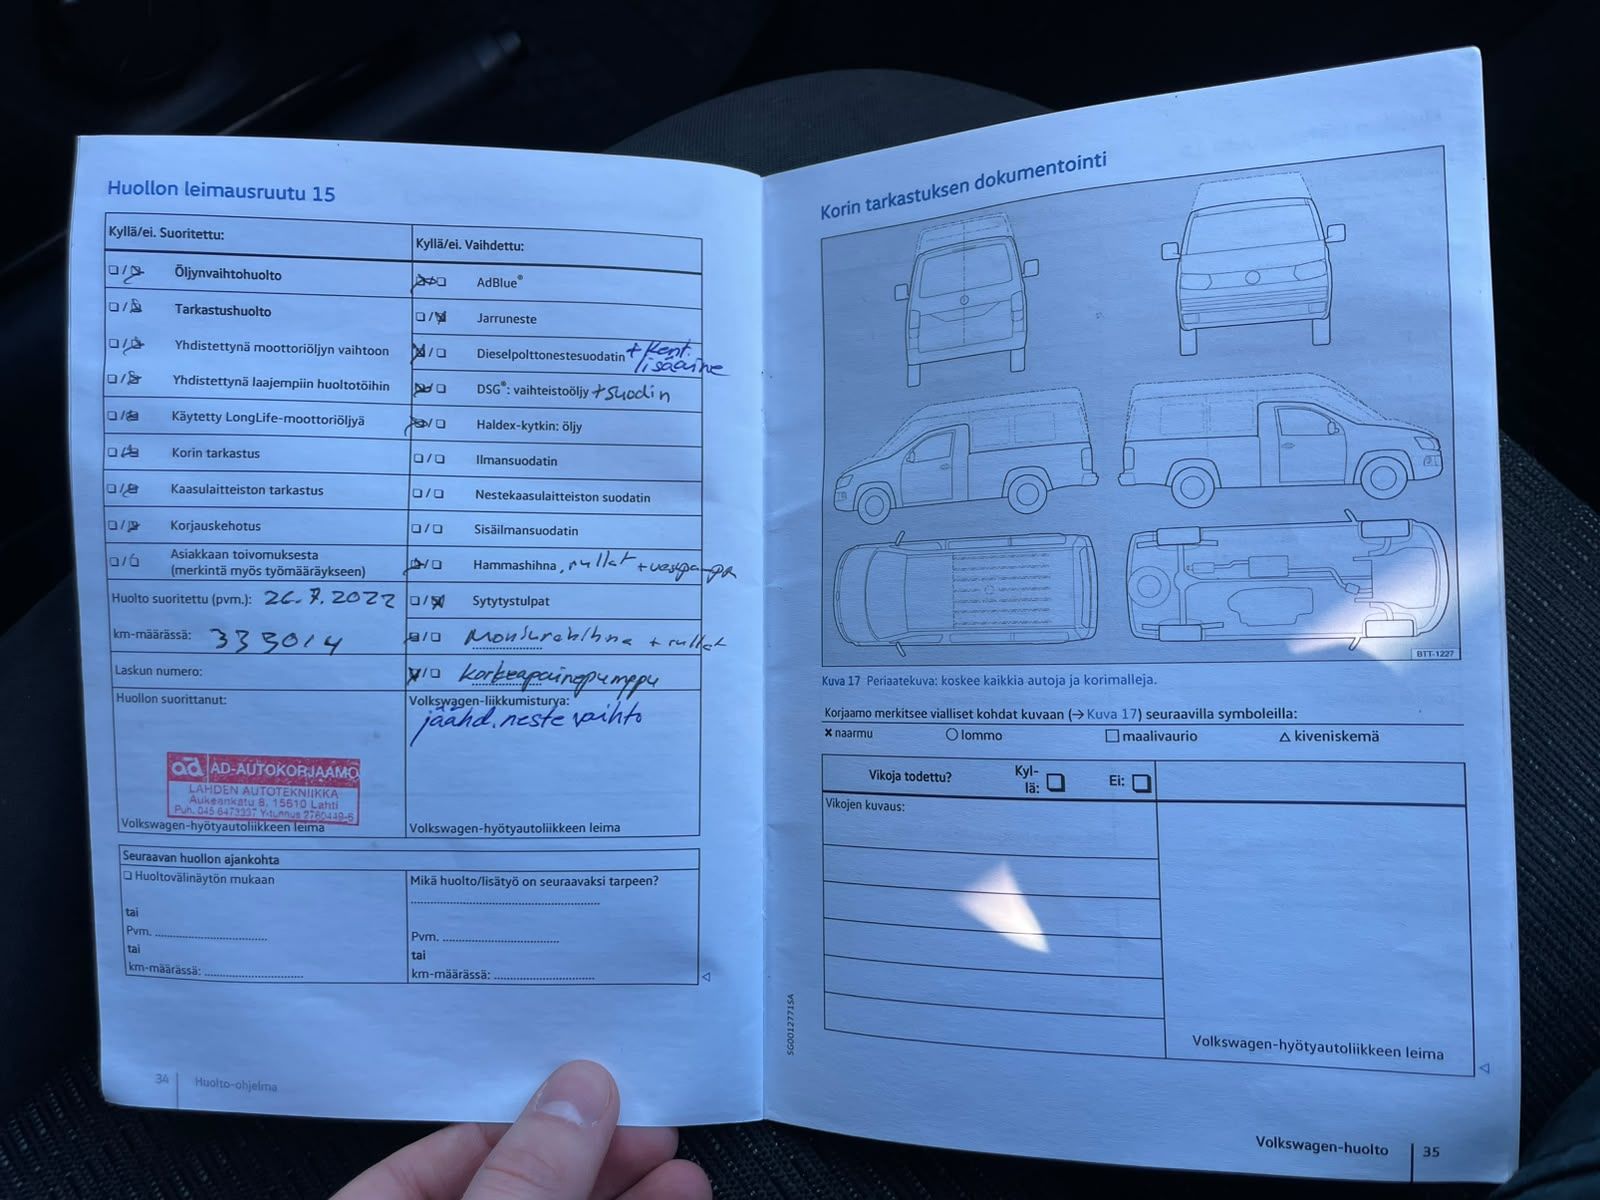 Huollon leimausruutu 15
Kyllä/ei. Suoritettu:
Öljynvaihtohuolto
Tarkastushuolto
Yhdistettynä moottoriöljyn vaihtoon
Yhdistettynä laajempiin huoltotöihin
Käytetty LongLife-moottoriöljyä
Korin tarkastus
Kaasulaitteiston tarkastus
Korjauskehotus
Asiakkaan toivomuksesta
(merkintä myös työmääräykseen)
Huolto suoritettu (pvm.): 26.7.2022
km-määrässä: 333014
Laskun numero:
Huollon suorittanut:
ad AD-AUTOKORJAAMO
LAHDEN AUTOTEKNIIKKA
Aukeankatu 8, 15610 Lahti
Puh. 045 6473337 Y-tunnus 2760449-6
Volkswagen-hyötyautoliikkeen leima
Kyllä/ei. Vaihdettu:
AdBlue®
Jarruneste
Dieselpolttonestesuodatin + Kent.
lisäaine
DSG®: vaihteistoöljy + suodin
Haldex-kytkin: öljy
Ilmansuodatin
Nestekaasulaitteiston suodatin
Sisäilmansuodatin
Hammashihna, rullat + vesipumppu
Sytytystulpat
Moniurahihna + rullat
Korkeapainepumppu
Volkswagen-liikkumisturva:
jäähd.neste vaihto
Volkswagen-hyötyautoliikkeen leima
Seuraavan huollon ajankohta
Huoltovälinäytön mukaan
tai
Pvm.
tai
km-määrässä:
Mikä huolto/lisätyö on seuraavaksi tarpeen?
Pvm.
tai
km-määrässä:
34 Huolto-ohjelma
Korin tarkastuksen dokumentointi
BTT-1227
Kuva 17 Periaatekuva: koskee kaikkia autoja ja korimalleja.
Korjaamo merkitsee vialliset kohdat kuvaan (→ Kuva 17) seuraavilla symboleilla:
naarmu lommo maalivaurio kiveniskemä
Vikoja todettu? Kyl-
lä: Ei:
Vikojen kuvaus:
Volkswagen-hyötyautoliikkeen leima
SG0012771SA
Volkswagen-huolto 35